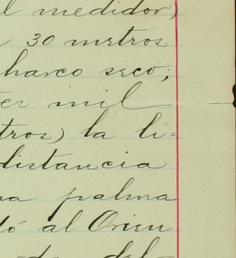 l medidor)
30 metros
charco seco,
mil
tros) la li=
distancia
na palma
dó al Orien
del